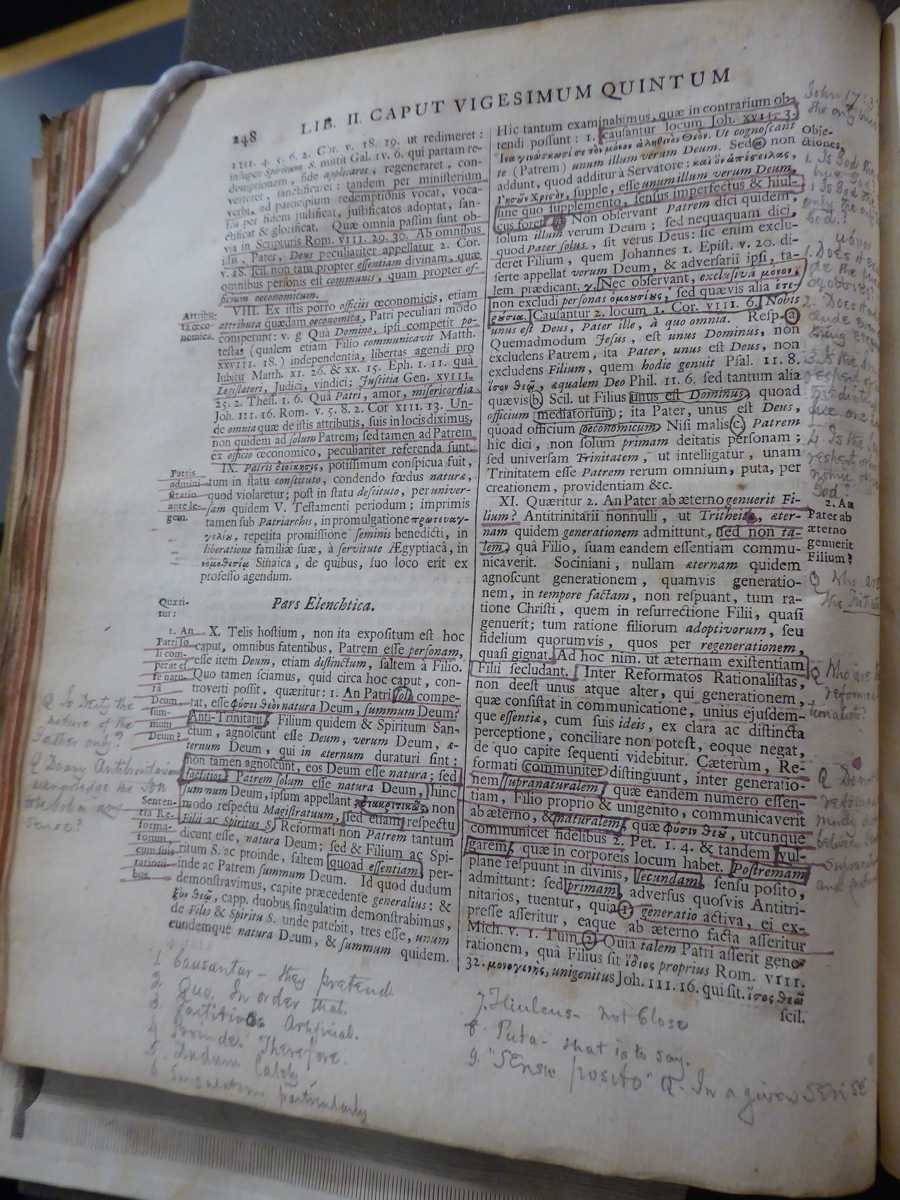 248 LIB. II. CAPUT VIGESIMUM QUINTUM
IIII. 4. 5. 6. 2. Cor. V. 18. 19. ut redimeret:
insuper Spiritum S. misit Gal. IV. 6. qui partam re-
demptionem, fide applicaret, regeneraret, con-
verteret, sanctificaret: tandem per ministerium
verbi, ad participium redemptionis vocat, voca-
tos per fidem justificat, justificatos adoptat, san-
ctificat & glorificat. Quæ omnia passim sunt ob-
via in Scripturis Rom. VIII. 29. 30. Ab omnibus
isti, Pater, Deus peculiariter appellatur 2. Cor.
V. 18. scil. non tam propter essentiam divinam, quæ
omnibus personis est communis, quam propter of-
ficium œconomicum.
Attributa
œco-
nomica.
VIII. Ex istis porro officiis œconomicis, etiam
attributa quædam œconomica, Patri peculiari modo
competunt: v. g Quà Domino, ipsi competit po-
testas (qualem etiam Filio communicavit Matth.
XXVIII. 18.) independentia, libertas agendi pro
lubitu Matth. XI. 26. & XX. 15. Eph. I. 11. quà
Legislatori, Judici, vindici; Justitia Gen. XVIII.
25. 2. Thess. I. 6. Quà Patri, amor, misericordia
Joh. III. 16. Rom. V. 5. 8. 2. Cor XIII. 13. Un-
de omnia quæ de istis attributis, suis in locis diximus,
non quidem ad solum Patrem; sed tamen ad Patrem
ex officio œconomico, peculiariter referenda sunt.
Patris
admini-
stratio
ante le-
gem.
IX. Patris διοίκησις, potissimum conspicua fuit,
tum in statu constituto, condendo fœdus naturæ,
quod violaretur; post in statu destituto, per univer-
sam quidem V. Testamenti periodum; imprimis
tamen sub Patriarchis, in promulgatione πρωτευαγ-
γελίου, repetita promissione seminis benedicti, in
liberatione familiæ suæ, à servitute Ægyptiacâ, in
νομοθεσίᾳ Sinaica, de quibus, suo loco erit ex
professo agendum.
Pars Elenchtica.
Quæri-
tur:
1. An
Patri so-
li com-
petat es-
se natu-
ra
Deum,
sum-
mum
Deum?
X. Telis hostium, non ita expositum est hoc
caput, omnibus fatentibus, Patrem esse personam,
esse item Deum, etiam distinctum, saltem à Filio.
Quo tamen sciamus, quid circa hoc caput, con-
troverti possit, quæritur: 1. An Patri soli compe-
tat, esse φύσει θεὸν natura Deum, summum Deum?
Anti-Trinitarii, Filium quidem & Spiritum San-
ctum, agnoscunt esse Deum, verum Deum, æ-
ternum Deum, qui in æternum duraturi sint:
non tamen agnoscunt, eos Deum esse natura; sed
factitios. Patrem solum esse natura Deum, hunc
summum Deum, ipsum appellant διακριτικῶς non
modo respectu Magistratuum, sed etiam respectu
Filii ac Spiritus S.
Senten-
tia Re-
forma-
torum,
cum suis
rationi-
bus.
Reformati non Patrem tantum
dicunt esse, natura Deum; sed & Filium ac Spi-
ritum S. ac proinde, saltem quoad essentiam per-
inde ac Patrem summum Deum. Id quod dudum
demonstravimus, capite præcedente generalius: &
capp. duobus singulatim demonstrabimus,
de Filio & Spiritu S. unde patebit, tres esse, unum
eundemque natura Deum, & summum quidem.
Q Is Deity the
nature of the
Father only?
Q Do any Antitrinitarians
1. Causantur - they pretend.
2. Quo. In order that.
3. Factitios Artificial.
4. Proinde. Therefore.
5. Dudum Lately
6. Singulatim particularly
Hic tantum examinabimus, quæ in contrarium ob-
tendi possunt: 1. causantur locum Joh. XVII. 3.
Ἵνα γινώσκωσί σε τὸν μόνον ἀληθινὸν Θεόν. Ut cognoscant
te (Patrem) unum illum verum Deum. Sed a non
addunt, quod additur à Servatore: καὶ ὃν ἀπέστειλας,
Ἰησοῦν Χριστὸν, supple, esse unum illum verum Deum,
sine quo supplemento, sensus imperfectus & hiul-
cus foret. Non observant Patrem dici quidem,
solum illum verum Deum; sed nequaquam dici,
quod Pater solus, sit verus Deus: sic enim exclu-
deret Filium, quem Johannes 1. Epist. V. 20. di-
serte appellat verum Deum, & adversarii ipsi, ta-
lem prædicant. γ. Nec observant, exclusivâ μόνον,
non excludi personas ὁμοουσίους, sed quævis alia ἑτε-
ρούσια. Causantur 2. locum 1. Cor. VIII. 6. Nobis
unus est Deus, Pater ille, à quo omnia. Resp. a
Quemadmodum Jesus, est unus Dominus, non
excludens Patrem, ita Pater, unus est Deus, non
excludens Filium, quem hodie genuit Psal. II. 8.
ἴσον Θεῷ, æqualem Deo Phil. II. 6. sed tantum alia
quævis b Scil. ut Filius unus est Dominus, quoad
officium mediatorium; ita Pater, unus est Deus,
quoad officium œconomicum. Nisi malis c. Patrem
hic dici, non solum primam deitatis personam;
sed universam Trinitatem, ut intelligatur, unam
Trinitatem esse Patrem rerum omnium, puta, per
creationem, providentiam &c.
Obje-
ctiones,
2. An
Pater ab
æterno
genuerit
Filium?
XI. Quæritur 2. An Pater ab æterno genuerit Fi-
lium? Antitrinitarii nonnulli, ut Tritheitæ, æter-
nam quidem generationem admittunt, sed non ta-
lem, quâ Filio, suam eandem essentiam commu-
nicaverit. Sociniani, nullam æternam quidem
agnoscunt generationem, quamvis generatio-
nem, in tempore factam, non respuant, tum ra-
tione Christi, quem in resurrectione Filii, quasi
genuerit; tum ratione filiorum adoptivorum, seu
fidelium quorumvis, quos per regenerationem,
quasi gignat. Ad hoc nim. ut æternam existentiam
Filii secludant. Inter Reformatos Rationalistas,
non deest unus atque alter, qui generationem,
quæ consistat in communicatione, unius ejusdem-
que essentiæ, cum suis ideis, ex clara ac distincta
perceptione, conciliare non potest, eoque negat,
de quo capite sequenti videbitur. Cæterùm, Re-
formati communiter distinguunt, inter generatio-
nem supranaturalem, quæ eandem numero essen-
tiam, Filio proprio & unigenito, communicaverit
ab æterno, & naturalem, quæ φύσιν θεοῦ, utcunque
communicet fidelibus 2. Pet. I. 4. & tandem vul-
garem, quæ in corporeis locum habet. Postremam
plane respuunt in divinis, secundam, sensu posito,
admittunt: sed primam, adversus quosvis Antitri-
nitarios, tuentur, quia 1 generatio activa, ei ex-
presse asseritur, eaque ab æterno facta asseritur
Mich. V. 1. Tum 2 Quia talem Patri asserit gene-
rationem, quâ Filius sit ἴδιος proprius Rom. VIII.
32. μονογενὴς, unigenitus Joh. III. 16. qui sit. ἴσος Θεῷ
scil.
7. Hiulcus - not Close
8. Puta - that is to say.
9. "Sensu posito" Q. In a given sense